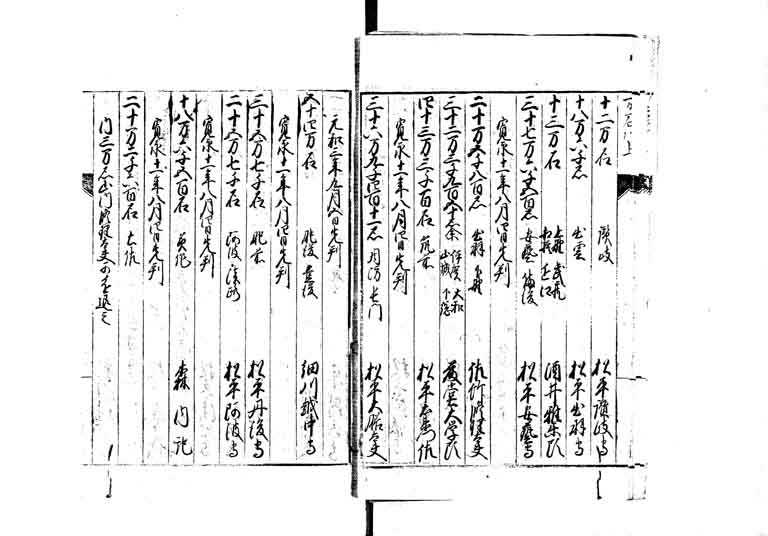 万石以上
十二万石 讃岐 松平讃岐守
十八万六千石 出雲 松平出羽守
十三万石 上野 武蔵 近江 酒井雅楽頭
三十七万六千五百石 安藝 備後 松平安藝守
寛永十一年八月四日先判
二十万五千八百石 出羽 下野 佐竹修理大夫
三十二万三千九百五十石 伊賀 大和 山城 下総 藤堂大学頭
四十三万三千百石 筑前 松平右衛門佐
寛永十一年八月四日先判
三十六万九千四百十一石 周防 長門 松平大膳大夫
元和三年九月五日先判
五十四万石 肥後 豊後 細川越中守
寛永十一年八月四日先判
三十五万七千石 肥前 松平丹後守
二十五万七千石 阿波 淡路 松平阿波守
寛永十一年八月四日先判
十八万六千五百石 美作 森内記
寛永十一年八月四日先判
二十万二千六百石 土佐
内三万石山内修理大夫